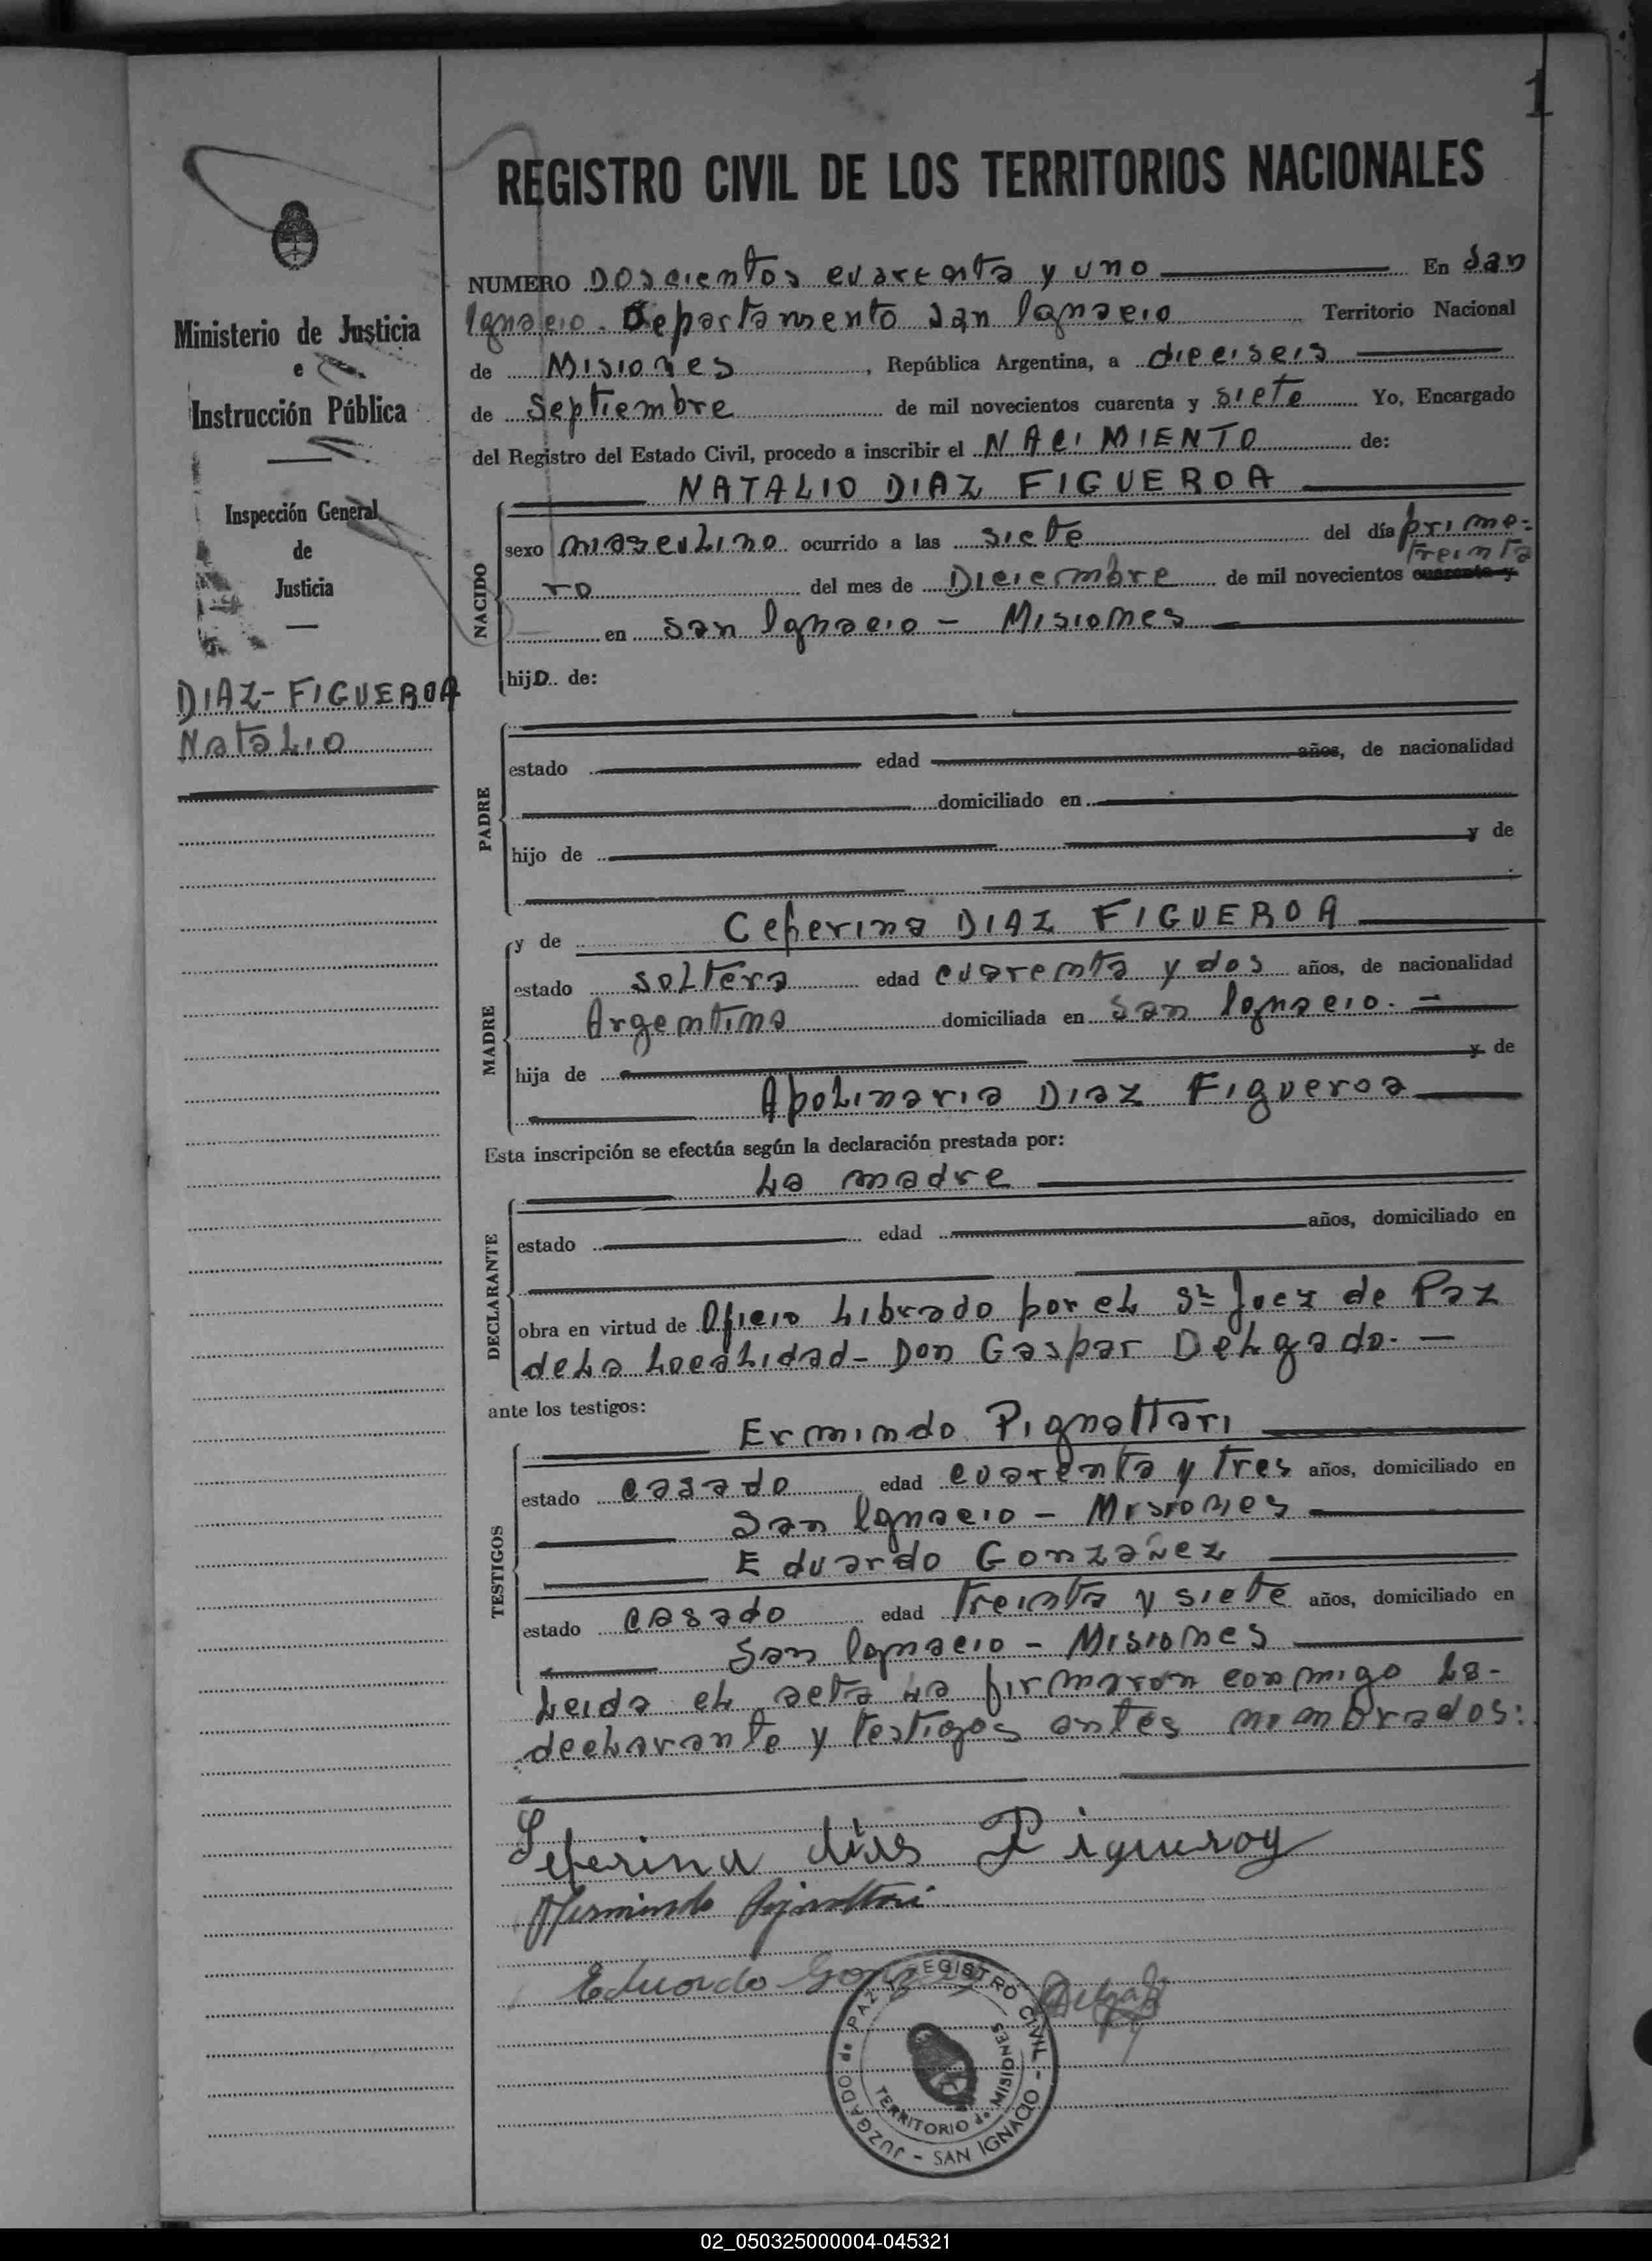 1
REGISTRO CIVIL DE LOS TERRITORIOS NACIONALES
Ministerio de Justicia
e
Instrucción Pública
Inspección General
de
Justicia
DIAZ-FIGUEROA
Natalio
NUMERO Doscientos cuarenta y uno En San
Ignacio. Departamento San Ignacio Territorio Nacional
de Misiones, República Argentina, a dieciseis
de Septiembre de mil novecientos cuarenta y siete Yo, Encargado
del Registro del Estado Civil, procedo a inscribir el NACIMIENTO de:
NATALIO DIAZ FIGUEROA
NACIDO
sexo masculino ocurrido a las siete del día prime-
treinta
ro del mes de Diciembre de mil novecientos cuarenta y
en San Ignacio - Misiones
hijo de:
PADRE
estado edad años, de nacionalidad
domiciliado en
hijo de y de
MADRE
y de Ceferina DIAZ FIGUEROA
estado soltera edad cuarenta y dos años, de nacionalidad
Argentina domiciliada en San Ignacio. -
hija de y de
Apolinaria Diaz Figueroa
Esta inscripción se efectúa según la declaración prestada por:
La madre
DECLARANTE
estado edad años, domiciliado en
obra en virtud de Oficio Librado por el Sr Juez de Paz
de la Localidad - Don Gaspar Delgado. -
ante los testigos:
TESTIGOS
Ermindo Pignattari
estado casado edad cuarenta y tres años, domiciliado en
San Ignacio - Misiones
Eduardo Gonzañez
estado casado edad treinta y siete años, domiciliado en
San Ignacio - Misiones
Leida el acta la firmaron conmigo la-
declarante y testigos antes nombrados:
Seferina dias Figueroy
Hermindo Pignattari
Eduardo Gonzalez
JUZGADO de PAZ y REGISTRO CIVIL - SAN IGNACIO -
TERRITORIO de MISIONES
02_050325000004-045321